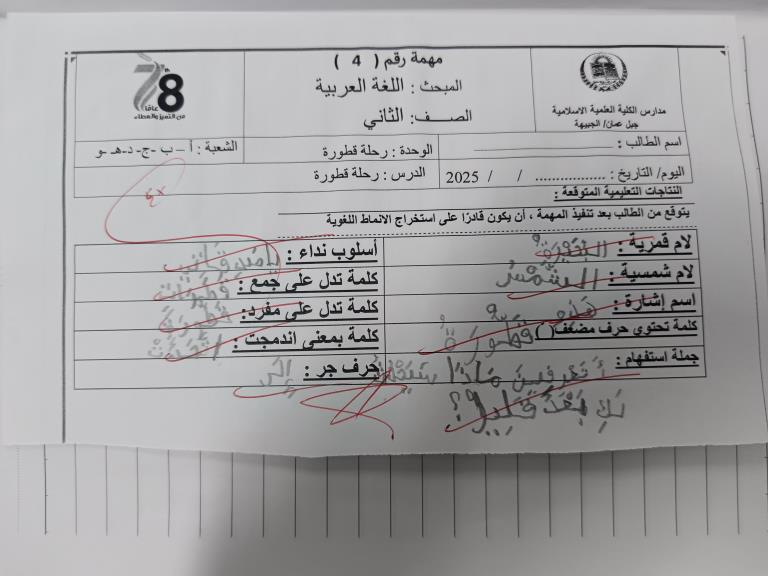 78
عامًا
من التميز والعطاء
مهمة رقم ( 4 )
المبحث : اللغة العربية
الصـــف: الثاني
مدارس الكلية العلمية الاسلامية
جبل عمان/ الجبيهة
اسم الطالب :
الوحدة : رحلة قطورة
الشعبة : أ – ب -ج- د-هـ -و
اليوم/ التاريخ : ................ / / 2025
الدرس : رحلة قطورة
النتاجات التعليمية المتوقعة :
يتوقع من الطالب بعد تنفيذ المهمة ، أن يكون قادرًا على استخراج الانماط اللغوية
لام قمرية :
أسلوب نداء :
لام شمسية : الشَّمْسُ
كلمة تدل على جمع :
اسم إشارة :
كلمة تدل على مفرد:
كلمة تحتوي حرف مضعف( ّ ) قَطّورَةُ
كلمة بمعنى اندمجت :
جملة استفهام : أَتَعْرِفينَ مَاذَا سَيَحْدُ
حرف جر : إِلى
بَعْدَ قَليلٍ؟